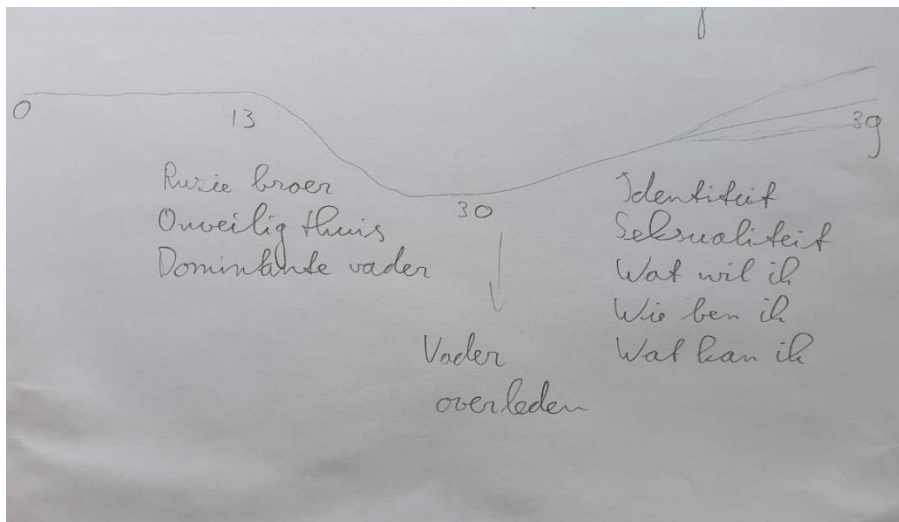 0
13
30
39
Ruzie broer
Onveilig thuis
Dominante vader
Vader
overleden
Identiteit
Seksualiteit
Wat wil ik
Wie ben ik
Wat kan ik